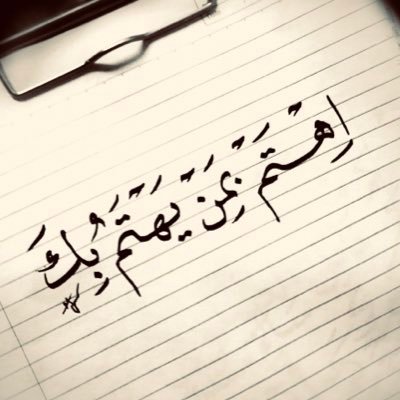 اهتم بمن يهتم بك